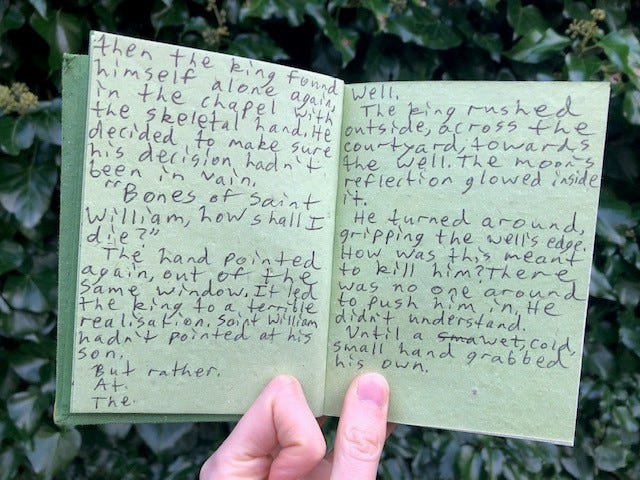 then the king found
himself alone again,
in the chapel with
the skeletal hand. He
decided to make sure
his decision hadn't
been in vain.
"Bones of Saint
William, how shall I
die?"
The hand pointed
again, out of the
same window. It led
the king to a terrible
realisation. Saint William
hadn't pointed at his
son.
But rather.
At.
The.
Well.
The king rushed
outside, across the
courtyard, towards
the well. The moon's
reflection glowed inside
it.
He turned around,
gripping the well's edge.
How was this meant
to kill him? There
was no one around
to push him in. He
didn't understand.
Until a sma wet, cold,
small hand grabbed
his own.